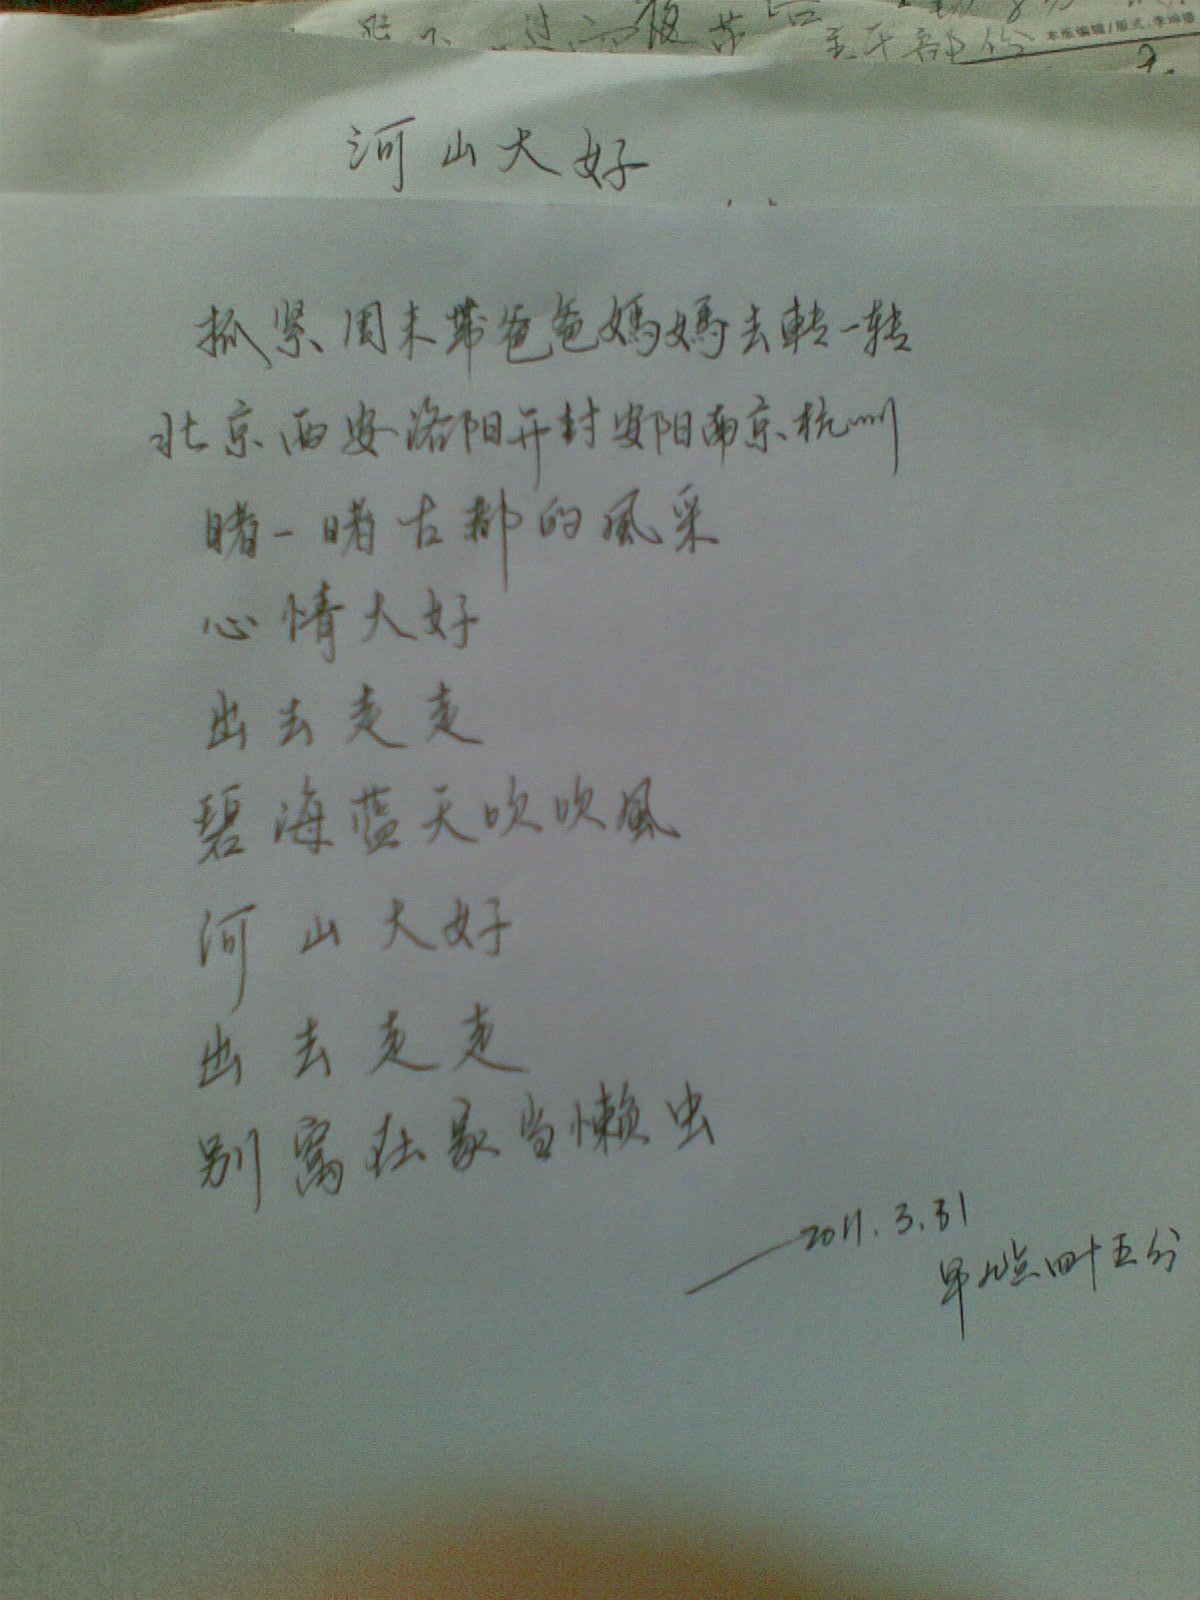 本版编辑/版式:李坤璟
河山大好
抓紧周末带爸爸媽媽去轉一转
北京西安洛阳开封安阳南京杭州
睹一睹古都的風采
心情大好
出去走走
碧海蓝天吹吹風
河山大好
出去走走
别窩在家当懒虫
——2011.3.31
早九点四十五分